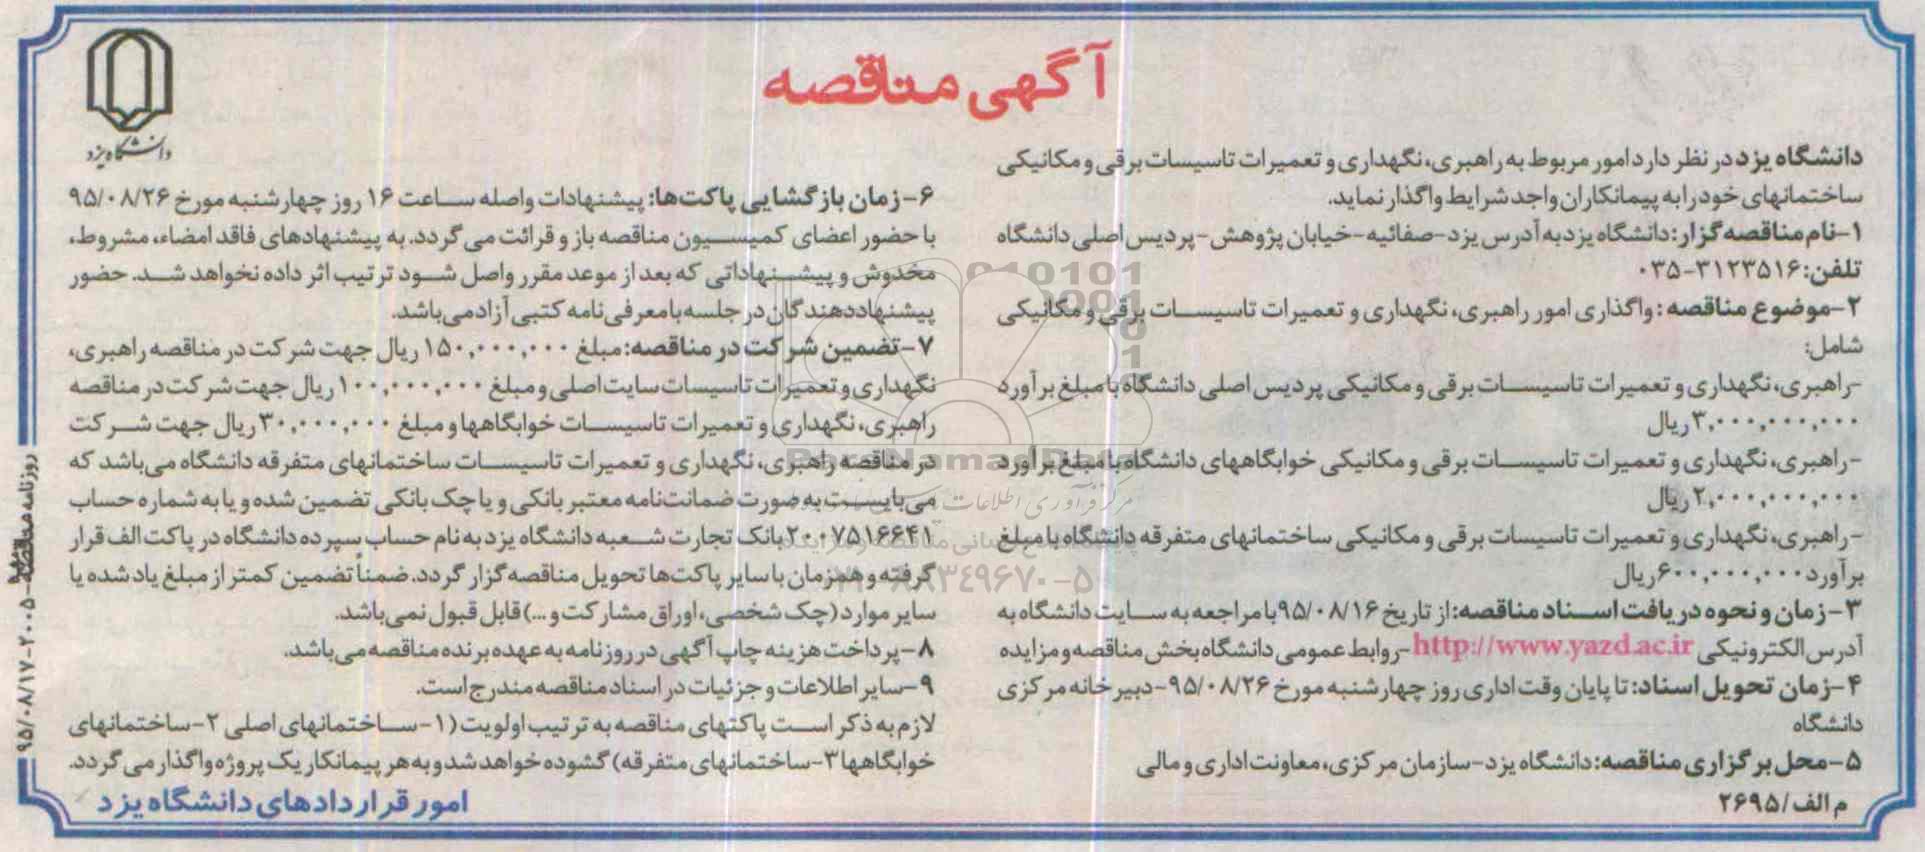 آگهی مناقصه
دانشگاه یزد
دانشگاه یزد در نظر دارد امور مربوط به راهبری، نگهداری و تعمیرات تاسیسات برقی و مکانیکی
ساختمانهای خود را به پیمانکاران واجد شرایط واگذار نماید.
۱-نام مناقصه گزار: دانشگاه یزد به آدرس یزد-صفائیه-خیابان پژوهش-پردیس اصلی دانشگاه
تلفن: ۳۱۲۳۵۱۶-۰۳۵
۲-موضوع مناقصه: واگذاری امور راهبری، نگهداری و تعمیرات تاسیسات برقی و مکانیکی
شامل:
-راهبری، نگهداری و تعمیرات تاسیسات برقی و مکانیکی پردیس اصلی دانشگاه با مبلغ برآورد
۳,۰۰۰,۰۰۰,۰۰۰ ریال
-راهبری، نگهداری و تعمیرات تاسیسات برقی و مکانیکی خوابگاههای دانشگاه با مبلغ برآورد
۲,۰۰۰,۰۰۰,۰۰۰ ریال
-راهبری، نگهداری و تعمیرات تاسیسات برقی و مکانیکی ساختمانهای متفرقه دانشگاه با مبلغ
برآورد ۶۰۰,۰۰۰,۰۰۰ ریال
۳-زمان و نحوه دریافت اسناد مناقصه: از تاریخ ۹۵/۰۸/۱۶ با مراجعه به سایت دانشگاه به
آدرس الکترونیکی http://www.yazd.ac.ir -روابط عمومی دانشگاه بخش مناقصه و مزایده
۴-زمان تحویل اسناد: تا پایان وقت اداری روز چهارشنبه مورخ ۹۵/۰۸/۲۶-دبیرخانه مرکزی
دانشگاه
۵-محل برگزاری مناقصه: دانشگاه یزد-سازمان مرکزی، معاونت اداری و مالی
م الف/۲۶۹۵
۶-زمان بازگشایی پاکت‌ها: پیشنهادات واصله ساعت ۱۶ روز چهارشنبه مورخ ۹۵/۰۸/۲۶
با حضور اعضای کمیسیون مناقصه باز و قرائت می گردد. به پیشنهادهای فاقد امضاء، مشروط،
مخدوش و پیشنهاداتی که بعد از موعد مقرر واصل شود ترتیب اثر داده نخواهد شد. حضور
پیشنهاددهندگان در جلسه با معرفی نامه کتبی آزاد می باشد.
۷-تضمین شرکت در مناقصه: مبلغ ۱۵۰,۰۰۰,۰۰۰ ریال جهت شرکت در مناقصه راهبری،
نگهداری و تعمیرات تاسیسات سایت اصلی و مبلغ ۱۰۰,۰۰۰,۰۰۰ ریال جهت شرکت در مناقصه
راهبری، نگهداری و تعمیرات تاسیسات خوابگاهها و مبلغ ۳۰,۰۰۰,۰۰۰ ریال جهت شرکت
در مناقصه راهبری، نگهداری و تعمیرات تاسیسات ساختمانهای متفرقه دانشگاه می باشد که
می بایست به صورت ضمانت‌نامه معتبر بانکی و یا چک بانکی تضمین شده و یا به شماره حساب
۲۰۰۷۵۱۶۶۴۱ بانک تجارت شعبه دانشگاه یزد به نام حساب سپرده دانشگاه در پاکت الف قرار
گرفته و همزمان با سایر پاکت‌ها تحویل مناقصه گزار گردد. ضمناً تضمین کمتر از مبلغ یاد شده یا
سایر موارد (چک شخصی، اوراق مشارکت و ...) قابل قبول نمی باشد.
۸-پرداخت هزینه چاپ آگهی در روزنامه به عهده برنده مناقصه می باشد.
۹-سایر اطلاعات و جزئیات در اسناد مناقصه مندرج است.
لازم به ذکر است پاکتهای مناقصه به ترتیب اولویت (۱-ساختمانهای اصلی ۲-ساختمانهای
خوابگاهها ۳-ساختمانهای متفرقه) گشوده خواهد شد و به هر پیمانکار یک پروژه واگذار می گردد.
امور قراردادهای دانشگاه یزد
ParsNamadData
۰۲۱-۸۸۳۴۹۶۷۰-۵